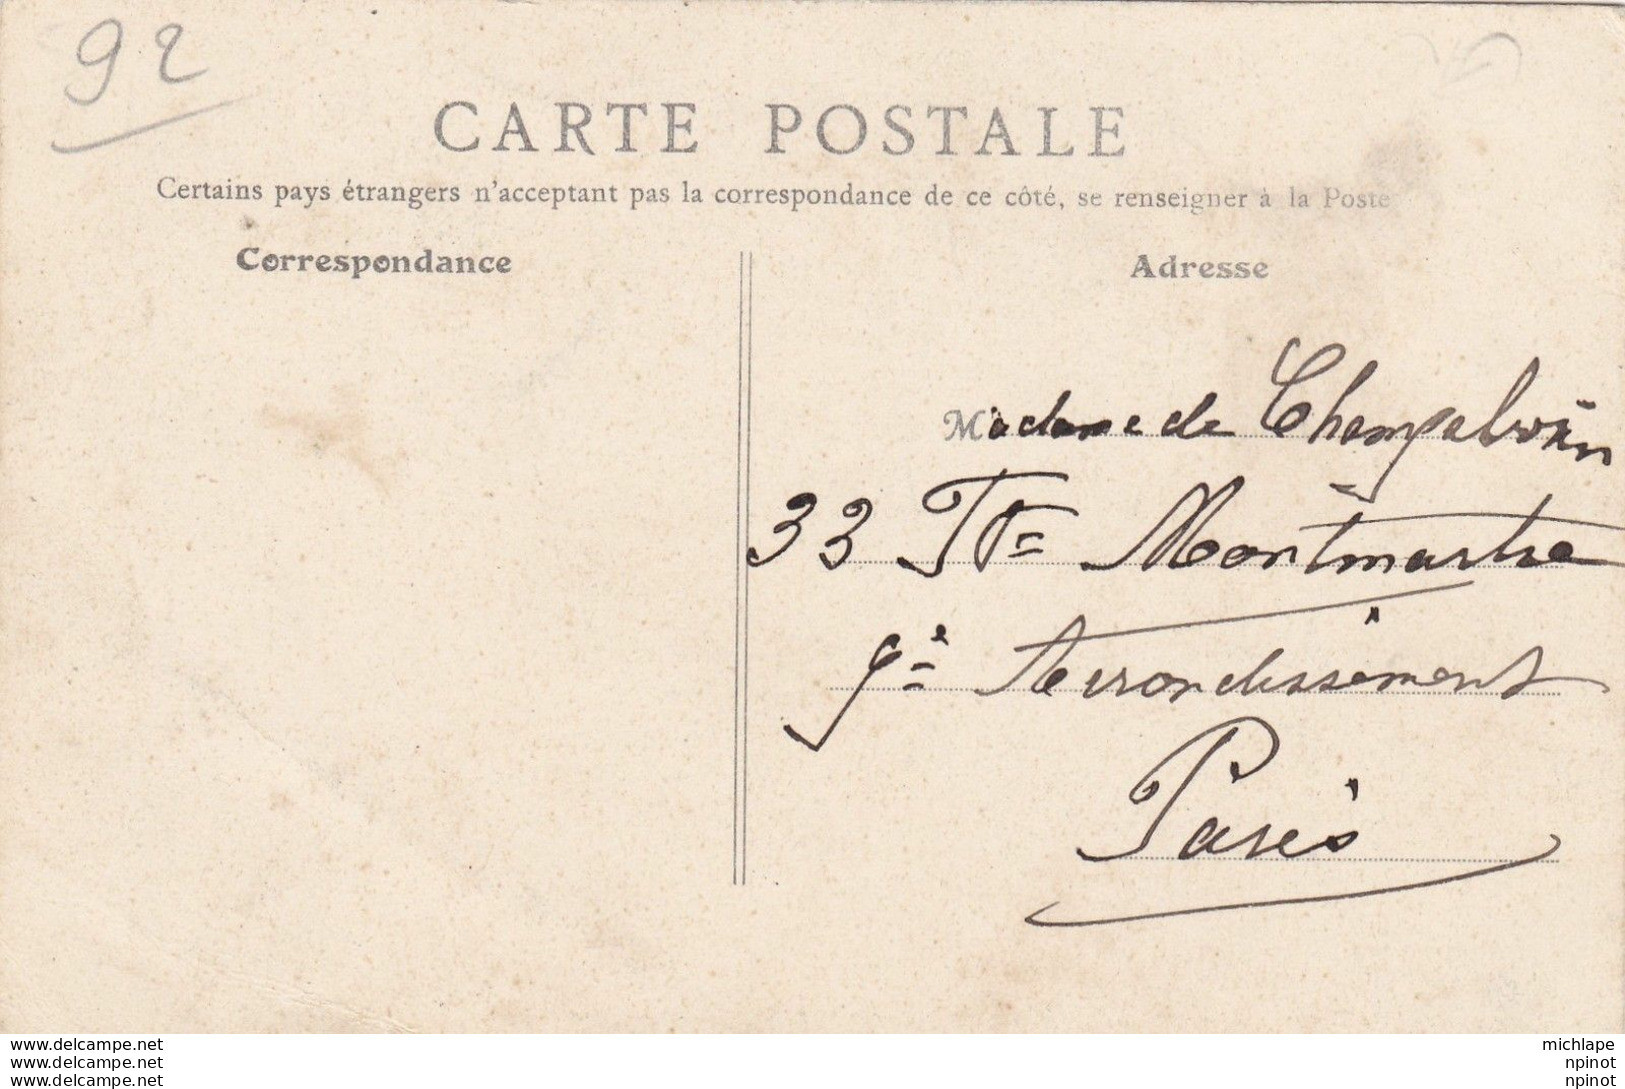 92
CARTE POSTALE
Certains pays étrangers n'acceptant pas la correspondance de ce côté, se renseigner à la Poste
Correspondance
Adresse
Madame de
33 Fg Montmartre
9è Arrondissement
Paris
www.delcampe.net
www.delcampe.net
www.delcampe.net
michlape
npinot
npinot